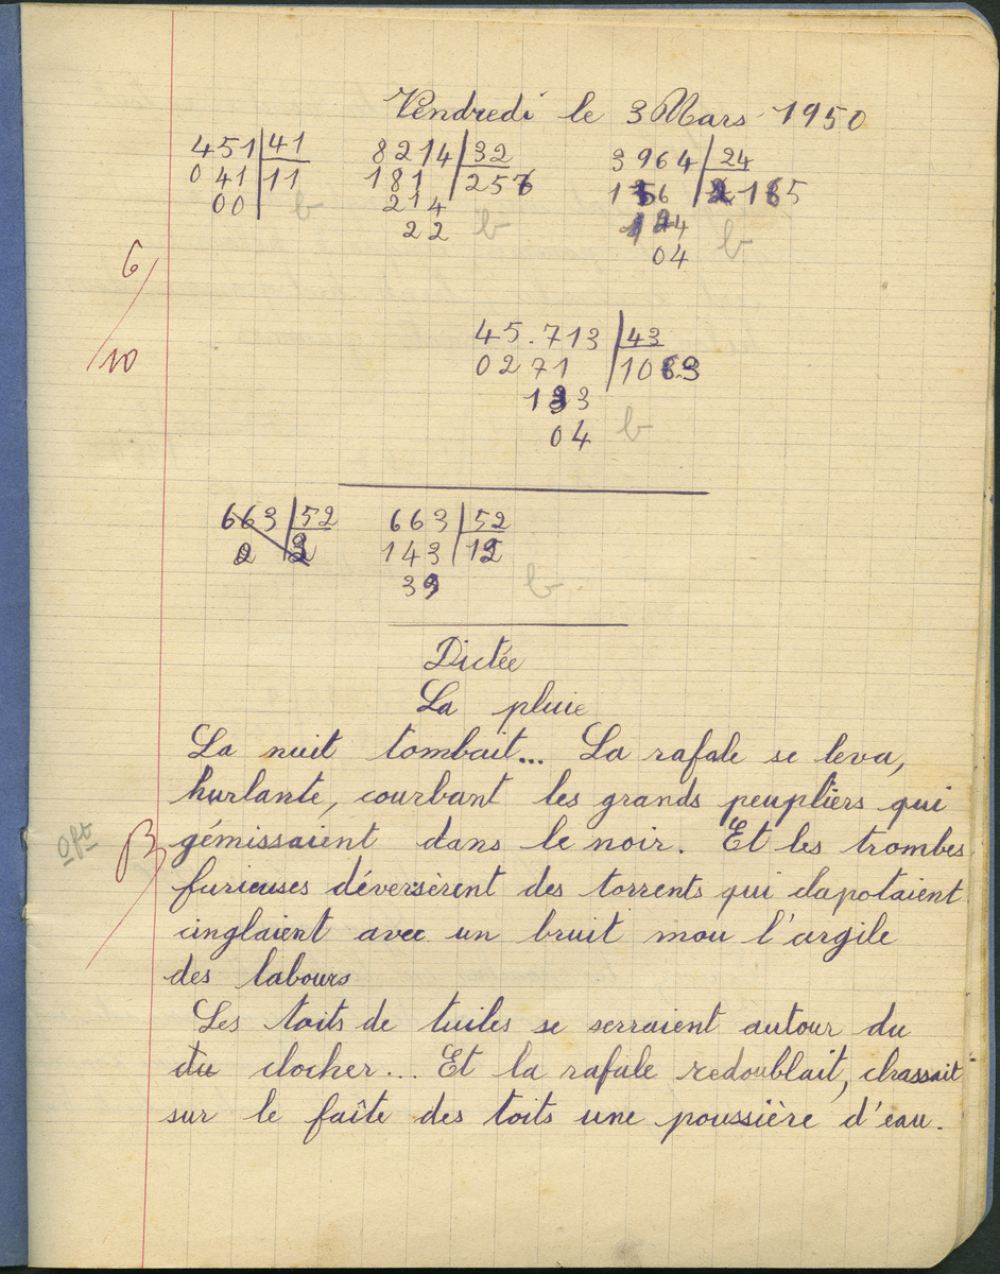 Vendredi le 3 Mars 1950
451 41 8214 32 3964 24
041 11 181 256 156 165
00 b 214 b 124 b
22 04
6/10
45.713 43
0271 1063
133
04 b
663 52 663 52
143 12
39 b
Dictée
La pluie
La nuit tombait... La rafale se leva,
hurlante, courbant les grands peupliers qui
0 fte B gémissaient dans le noir. Et les trombes
furieuses déversèrent des torrents qui clapotaient
cinglaient avec un bruit mou l'argile
des labours
Les toits de tuiles se serraient autour du
du clocher... Et la rafale redoublait, chassait
sur le faîte des toits une poussière d'eau.